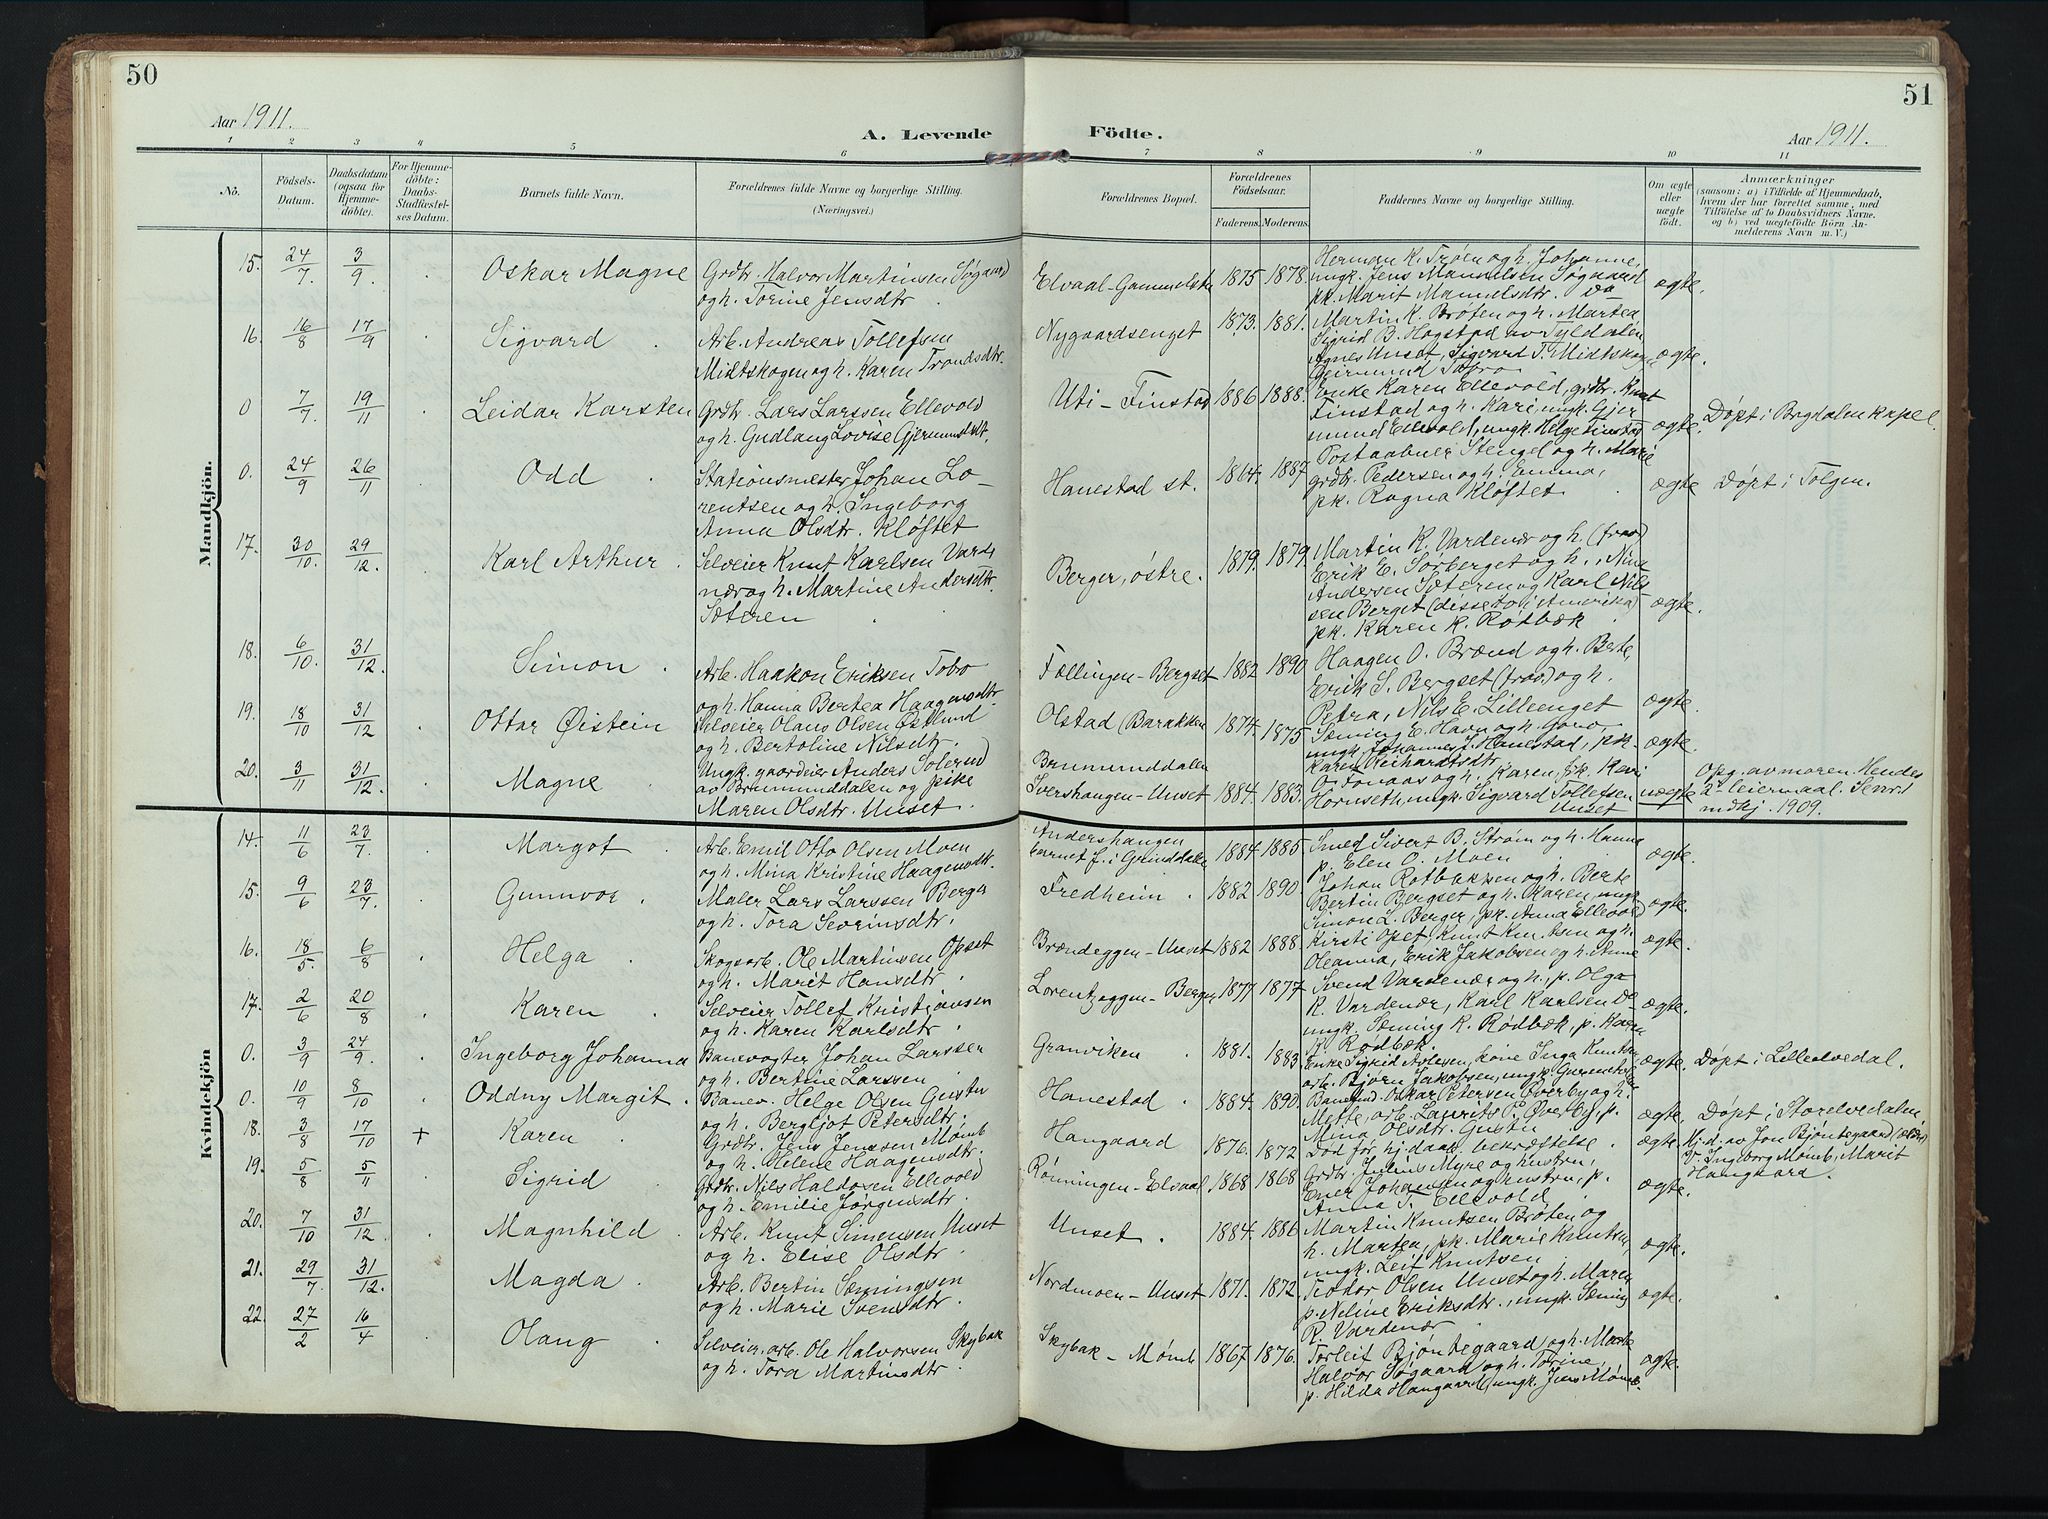 50
Aar 1911.
A. Levende
1 2 3 4 5 6
No.
Födsels-Datum.
Daabsdatum (ogsaa for Hjemme-döbte).
For Hjemme-döbte: Daabs-Stadfæstel-ses Datum.
Barnets fulde Navn.
Forældrenes fulde Navne og borgerlige Stilling.
(Næringsvei.)
Mandkjön.
15. 24/7 3/9 Oskar Magne Grdbr. Halvor Martinsen Søgaard
og h. Torine Jensdtr.
16. 16/8 17/9 Sigvard Arb. Andreas Tollefsen
Midtskogen og h. Karen Trondsdtr.
0 7/7 19/11 Leidar Karsten Grdbr. Lars Larssen Ellevold
og h. Gudlaug Lovise Gjermundsdt.
0. 24/9 26/11 Odd Stationsmester Johan Lo-
rentsen og h. Ingeborg
Anna Olsdtr. Kløftet
17. 30/10 29/12 Karl Arthur Selveier Knut Karlsen Varde
nær og h. Martine Andersdtr.
Sæteren
18. 6/10 31/12 Simon Arb. Haakon Eriksen Tobo
og h. Hanna Bertea Haagensdtr.
19. 18/10 31/12 Ottar Øistein Selveier Olaus Olsen Østlund
og h. Bertoline Nilsdtr.
20. 3/11 31/12 Magne Ungk. gaardeier Anders Solerud
av Brumunddalen og pike
Maren Olsdtr. Unset
Kvindekjön
14. 11/6 23/7 Margot Arb. Emil Otto Olsen Moen
og h. Mina Kristine Haagensdtr.
15. 9/6 23/7 Gunnvor Maler Lars Larssen Berger
og h. Tora Severinsdtr.
16. 18/5 6/8 Helga Skogsarb. Ole Martinsen Opset
og h. Marit Hansdtr.
17. 2/6 20/8 Karen Selveier Tollef Kristiansen
og h. Karen Karlsdtr.
0. 3/9 24/9 Ingeborg Johanna Banevogter Johan Larssen
og h. Bertine Larssen
0. 10/9 8/10 Oddny Margit Banev. Helge Olsen Gustu
og h. Bergljot Petersdtr.
18. 3/8 17/10 + Karen Grdbr. Jens Jenssen Mømb
og h. Helene Haagensdtr.
19. 5/8 5/11 Sigrid Grdbr. Nils Haldosen Ellevold
og h. Emilie Jørgensdtr.
20. 7/10 31/12 Magnhild Arb. Knut Simensen Unset
og h. Elise Olsdtr.
21. 29/7 31/12 Magda Arb. Bertin Sæmingsen
og h. Marie Svensdtr.
22. 27/2 16/4 Olaug Selveier, arb. Ole Halvorsen Skybak
og h. Tora Martinsdtr.
51
Födte.
Aar 1911.
7 8 9 10 11
Forældrenes Bopæl.
Forældrenes Födselsaar.
Faderens. Moderens.
Faddernes Navne og borgerlige Stilling.
Om ægte eller uægte födt.
Anmærkninger
(saasom: a) i Tilfælde af Hjemmedaab, hvem der har forrettet samme, med Tilföielse af to Daabsvidners Navne. og b) ved uægtefödte Börn An-melderens Navn m. V.)
Elvaal-Gammelstu 1875 1878. Herman K. Trøen og h. Johanne,
ungk. Jens Manuelsen Søgaard
pk. Marit Manuelsdtr. Do ægte.
Nygaardsenget 1873. 1881. Martin K. Brøten og h. Martea
Sigrid B. Hogstad av Tyldalen
Agnes Unset, Sigvard T. Midtskogen ægte.
Uti-Finstad 1886 1888. Enke Karen Ellevold, grdbr. Knut
Finstad og h. Kari, ungk. Gjer
mund Ellevold, ungk. Helge Finstad ægte. Døpt i Brydalen kapel.
Hanestad st. 1864. 1887 Postaabner Stengel og h. Marie
grdbr. Pedersen og h. Emma,
pk. Ragna Kløftet ægte Døpt i Tolgen.
Berger, østre. 1879. 1879. Martin K. Vardenær og h. (frav)
Erik E. Sørberget og h.,
Andersen Sæteren og Karl Nils
sen Berget (disse to i Amerika)
pk. Karen K. Rødbæk ægte.
Føllingen-Bergset 1882 1890 Haagen O. Brænd og h. Berte,
Erik S. Bergset (frav) og h.
Petra, Nils E. Lilleenget ægte.
Olstad (Barakken 1874. 1875 Sæming E. Havn og h. Goro,
ungk. Johannes J. Hanestad, pk.
Karen Reihardtsdtr. ægte.
Brumunddalen
Svershaugen-Unset 1884. 1883. O. Fonaas og h. Karen, pk. Kari
Hornseth, ungk. Sigvard Tollefsen
Unset uægte Opg. av moren. Hendes
2det leiermaal. Senest
m dkj. 1909.
Andershaugen
1884 1885 Smed Sivert B. Strøm og h. Hanna
p. Elen O. Moen ægte.
Fredheim 1882 1890 Johan Rotbakken og h. Berte
Bertin Bergset og h. Karen, ungk.
Simon L. Berger, pk. Anna Ellevold ægte.
Brændeggen-Unset 1882 1888 Kirsti Opset, Knut Knutsen og h.
Oleanna, Erik Jakobsen og h. Anne ægte.
Lorentzeggen-Berger 1877. 1877 Svend Vardenær og h., p. Olga
R. Vardenær, Karl Karlsen Do
ungk. Sæming K. Rødbæk, p. Karen
K. Rødbæk. ægte.
Granviken 1881. 1883 Enke Sigrid Avlesen, kone Inga Knutsen
arb. Bjørn Jakobsen, ungk. ægte. Døpt i Lilleelvedal.
Hanestad 1884. 1890. Oskar Petersen Øverby og h.
Mette, arb. Laurits P. Øverby, p.
Mina Olsdtr. Gustu ægte. Døpt i Storelvedalen
Haugaard 1876. 1872 Død før hj.daab. bekræftelse ægte Hj.d. av Jon Bjøntegaard (ældre)
V. Ingeborg Mømb, Marit
Haugaard.
Rønningen-Elvaal 1868 1868 Grdbr. Julius Myre og hustru,
Einer Johansen og hustru, p.
Anna T. Ellevold ægte.
Unset 1884. 1886 Martin Knutsen Brøten og
h. Martea, pk. Marie Knutsen,
ungk. Leif Knutsen ægte.
Nordmoen-Unset 1871. 1872 Teodor Olsen Unset og h. Maren
p. Neline Eriksdtr., ungk. Sæming
R. Vardenær ægte.
Skybak-Mømb 1867. 1876. Torleif Bjøntegaard og h. Marte
Halvor Søgaard og h. Torine,
p. Hilda Haugaard, ungk. Jens Mømb. ægte.